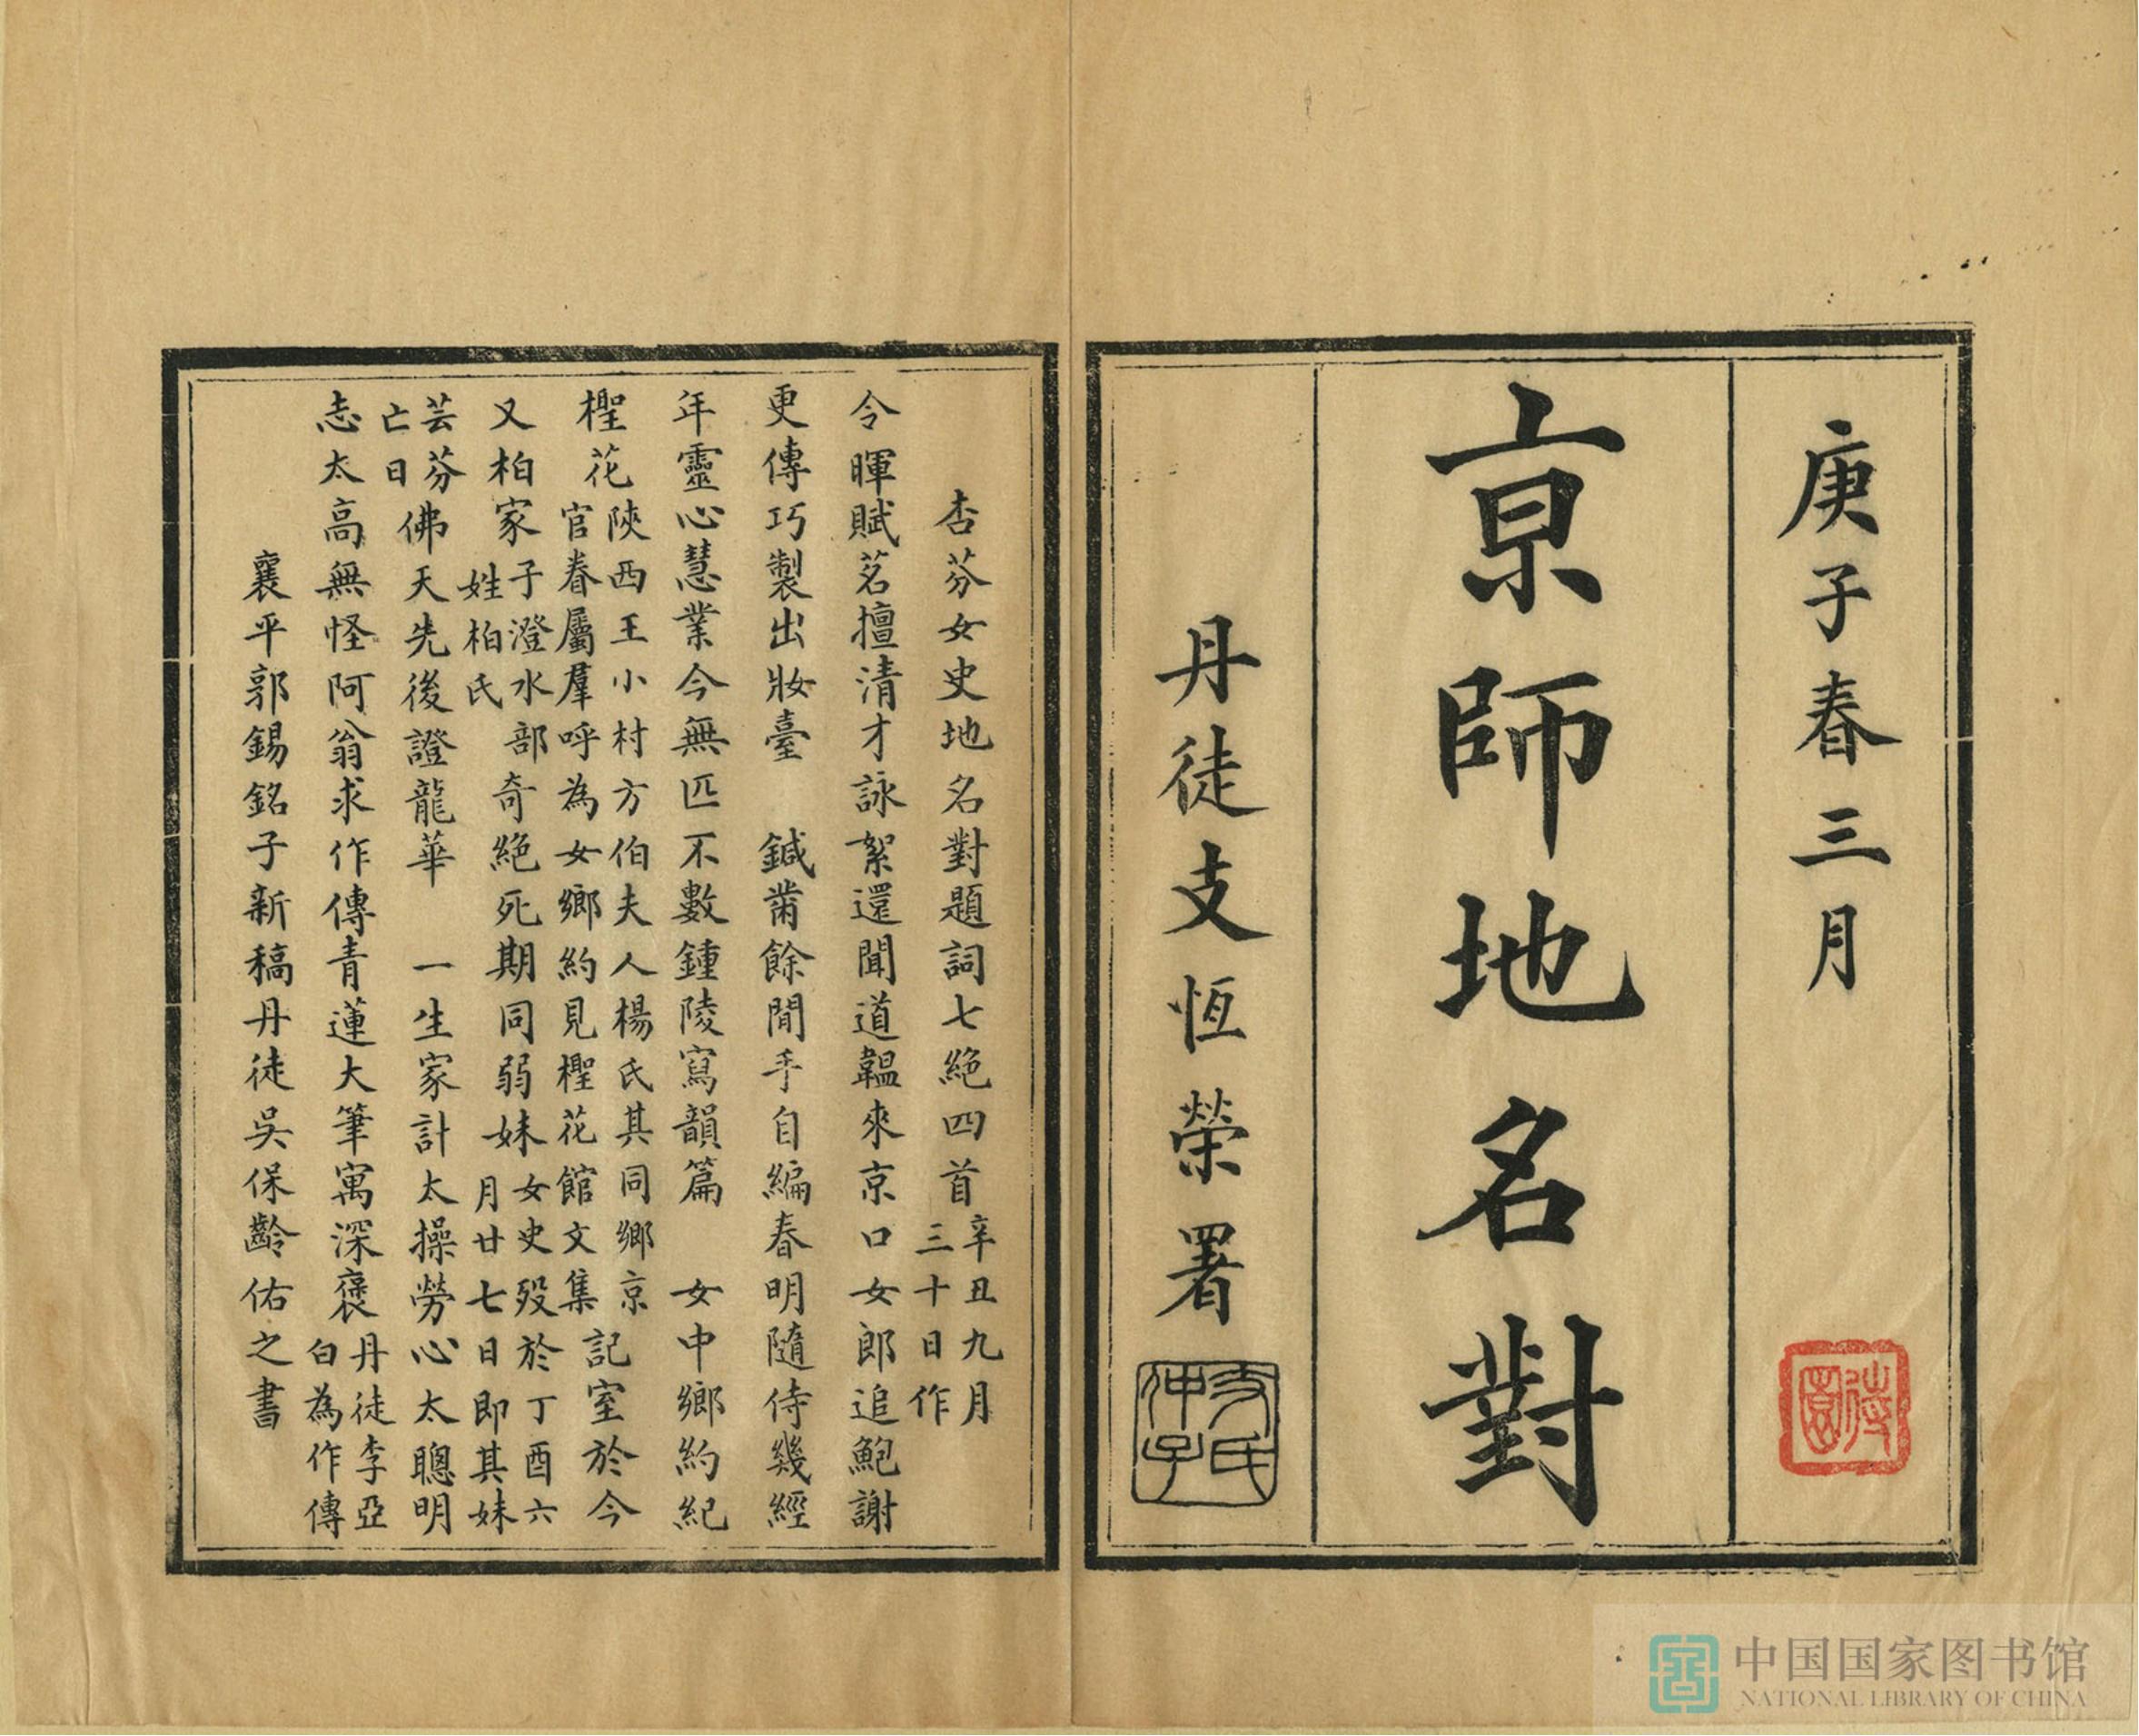 庚子春三月
京師地名對
丹徒支恆榮署
支氏仲子
杏芬女史地名對題詞七絶四首辛丑九月三十日作
令暉賦茗擅清才詠絮還聞道韞來京口女郎追鮑謝
更傳巧製出妝臺　鍼黹餘閒手自編春明隨侍幾經
年靈心慧業今無匹不數鍾陵寫韻篇　女中鄉約紀
檉花陝西王小村方伯夫人楊氏其同鄉京官眷屬羣呼為女鄉約見檉花館文集記室於今
又柏家子澄水部姓柏氏奇絶死期同弱妹女史歿於丁酉六月廿七日即其妹
芸芬亡日佛天先後證龍華　一生家計太操勞心太聰明
志太高無怪阿翁求作傳青蓮大筆寓深褒丹徒李亞白為作傳
襄平郭錫銘子新稿丹徒吳保齡佑之書
中国国家图书馆
NATIONAL LIBRARY OF CHINA